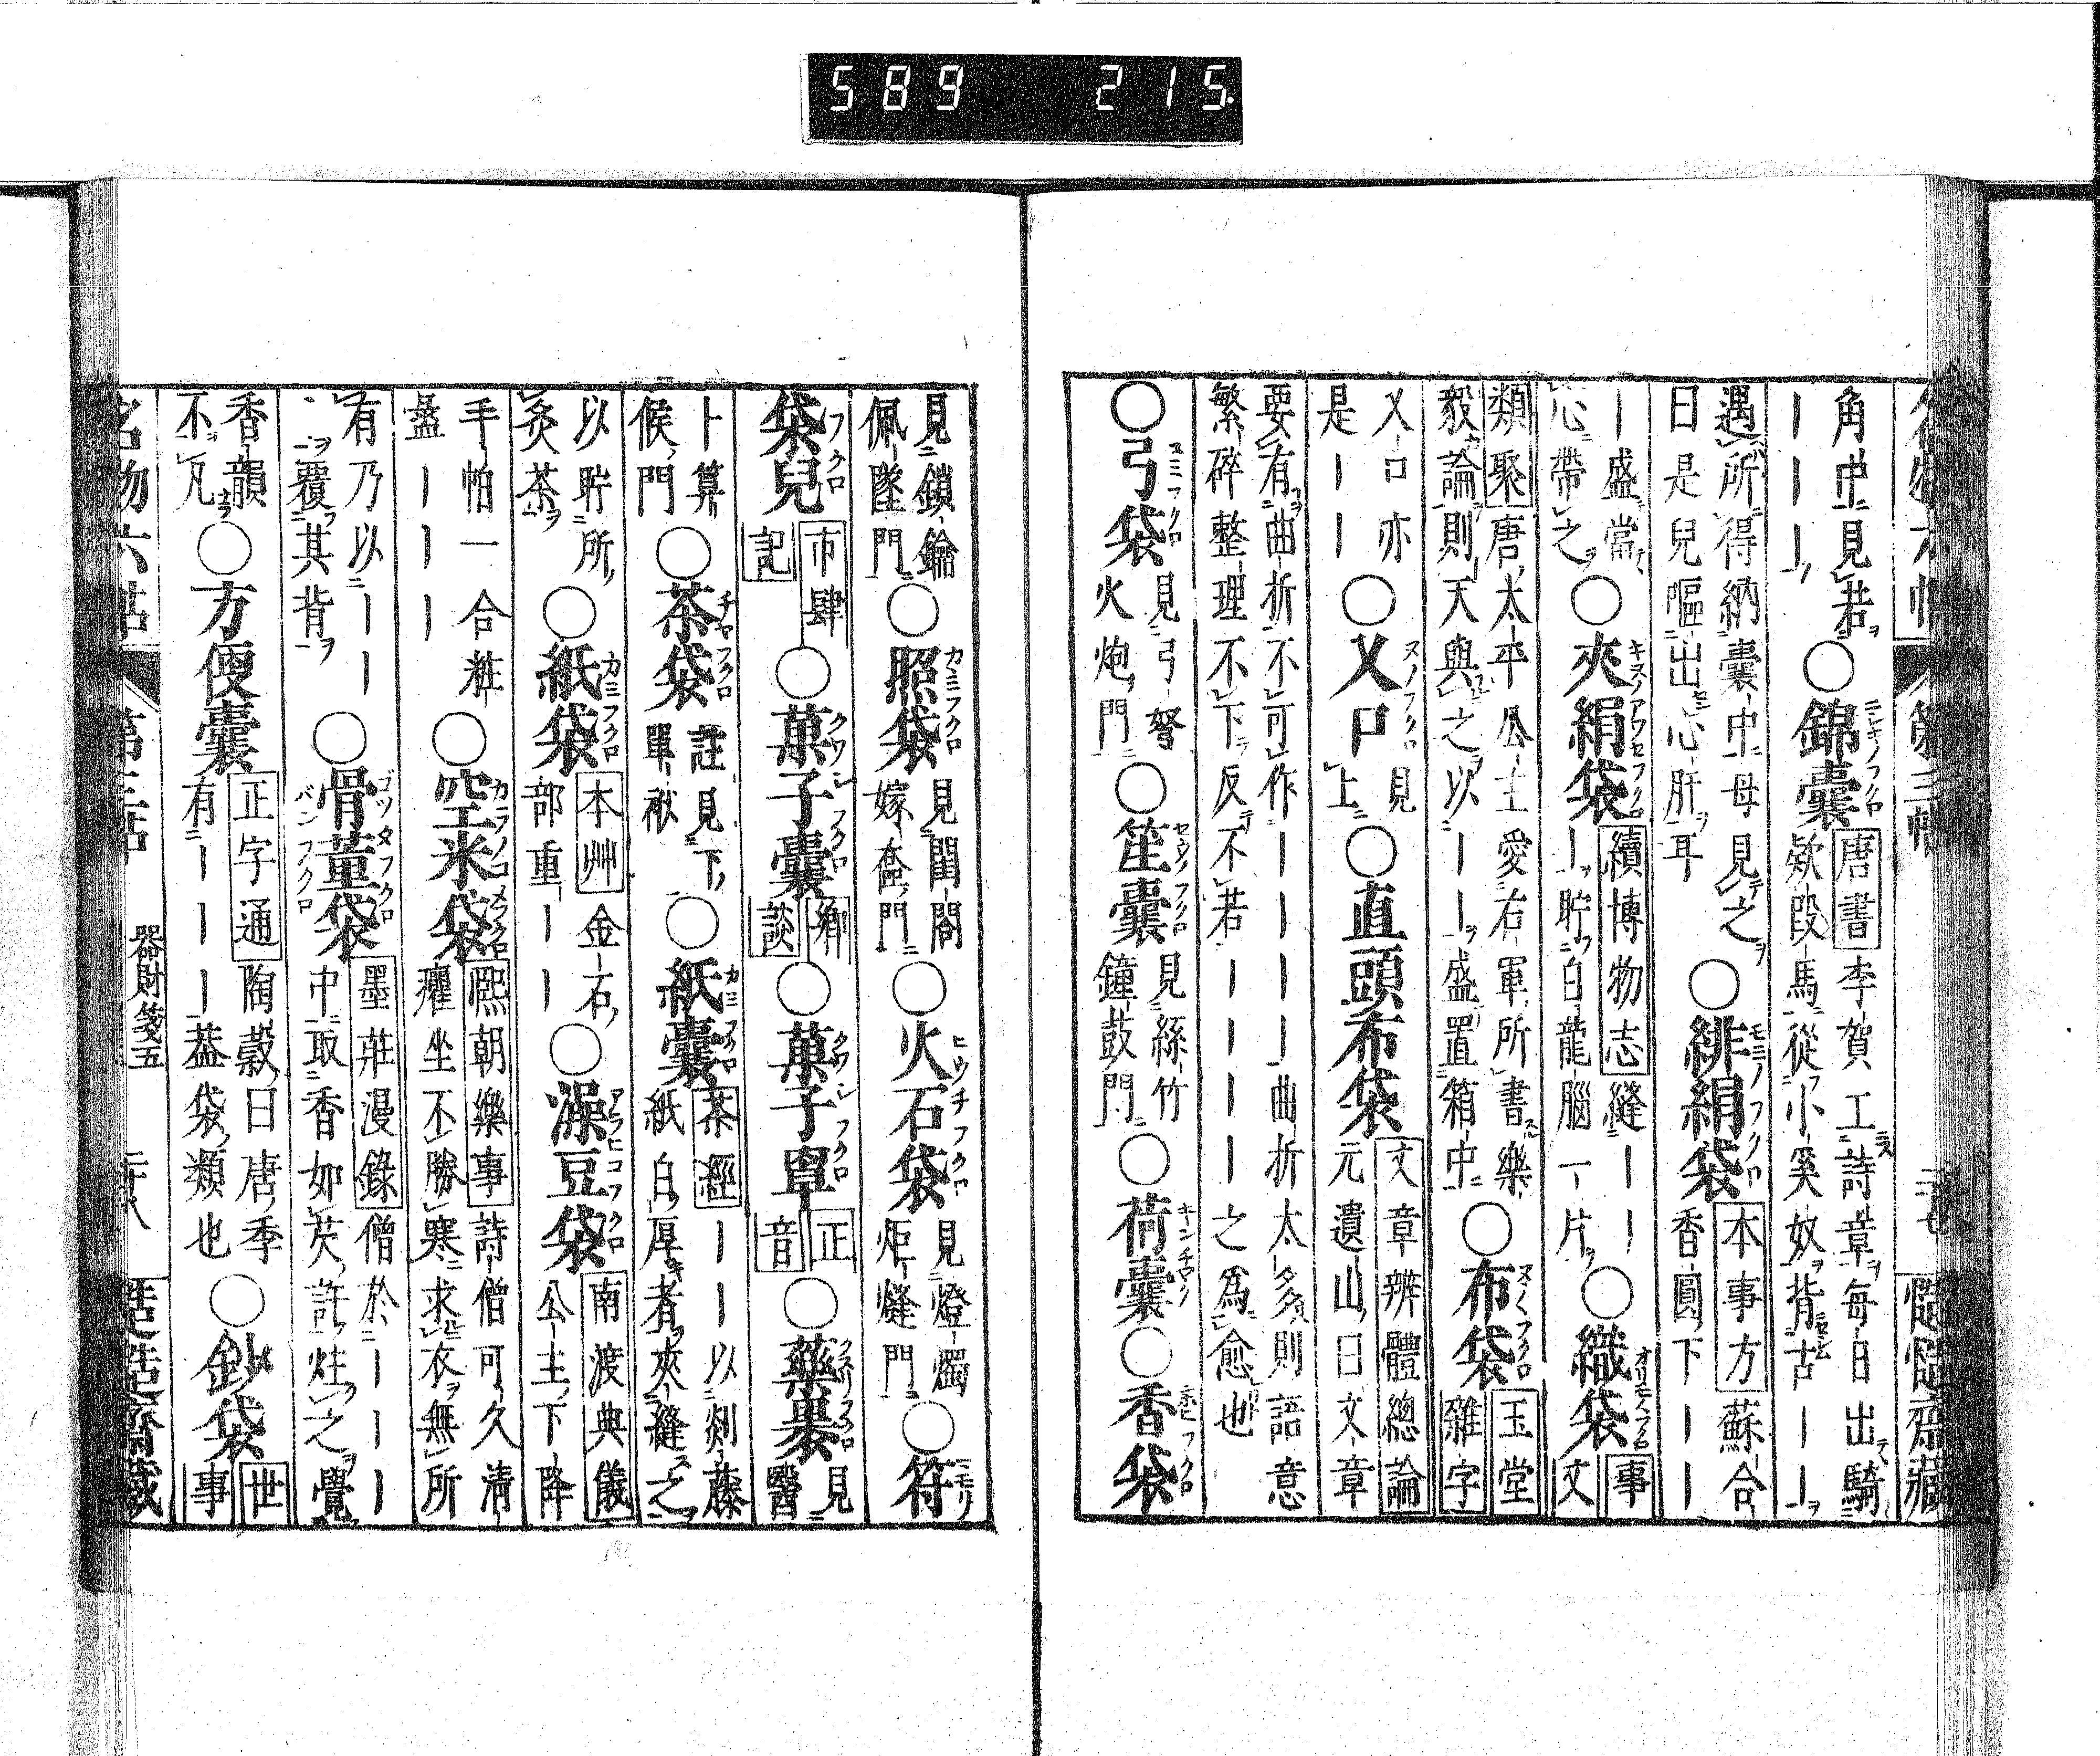 589 215
角中見君
〡〡〡〡
○錦囊
唐書李賀工詩章每日出騎
欵段馬從小奚奴背古〡〡
遇所得納囊中母見之
曰是兒嘔出心肝耳
○緋絹袋
本事方蘇合
香圓下〡〡
〡盛當
心帶之
○夾絹袋
續博物志縫〡〡
〡貯白龍腦一片
○織袋
事
文
類聚唐太平公主愛右軍所書樂
毅論則天與之以〡〡盛置箱中
○布袋
玉堂
雜字
又口亦
是〡〡
○又口
見
上
○直頭布袋
文章辨體總論
元遺山曰文章
要有曲折不可作〡〡〡〡曲折太多則語意
繁碎整理不下反不若〡〡〡〡之為愈也
○弓袋
見弓弩
火炮門
○笙囊
見絲竹
鐘鼓門
○荷囊○香袋
見鎖鑰
佩墜門
○照袋
見閨閤
嫁奩門
○火石袋
見燈燭
炬㷭門
○符
袋兒
市肆
記
○菓子囊
鄉
談
○菓子單
正
音
○藥裹
見
醫
卜算
候門
○茶袋
註見下
單袱
○紙囊
茶經〡〡以剡藤
紙白厚者夾縫之
以貯所
炙茶
○紙袋
本艸金石
部重〡〡
○澡豆袋
南渡典儀
公主下降
手帕一合粧
盝〡〡〡
○空米袋
熙朝樂事詩僧可久清
癯坐不勝寒求衣無所
有乃以〡〡
覆其背
○骨董袋
墨莊漫錄僧於〡〡〡
中取香如芡許炷之覺
香韻
不凡
○方便囊
正字通陶穀曰唐季
有〡〡〡葢袋類也
○鈔袋
世
事
名物六帖
第三帖
器財箋五
二十八